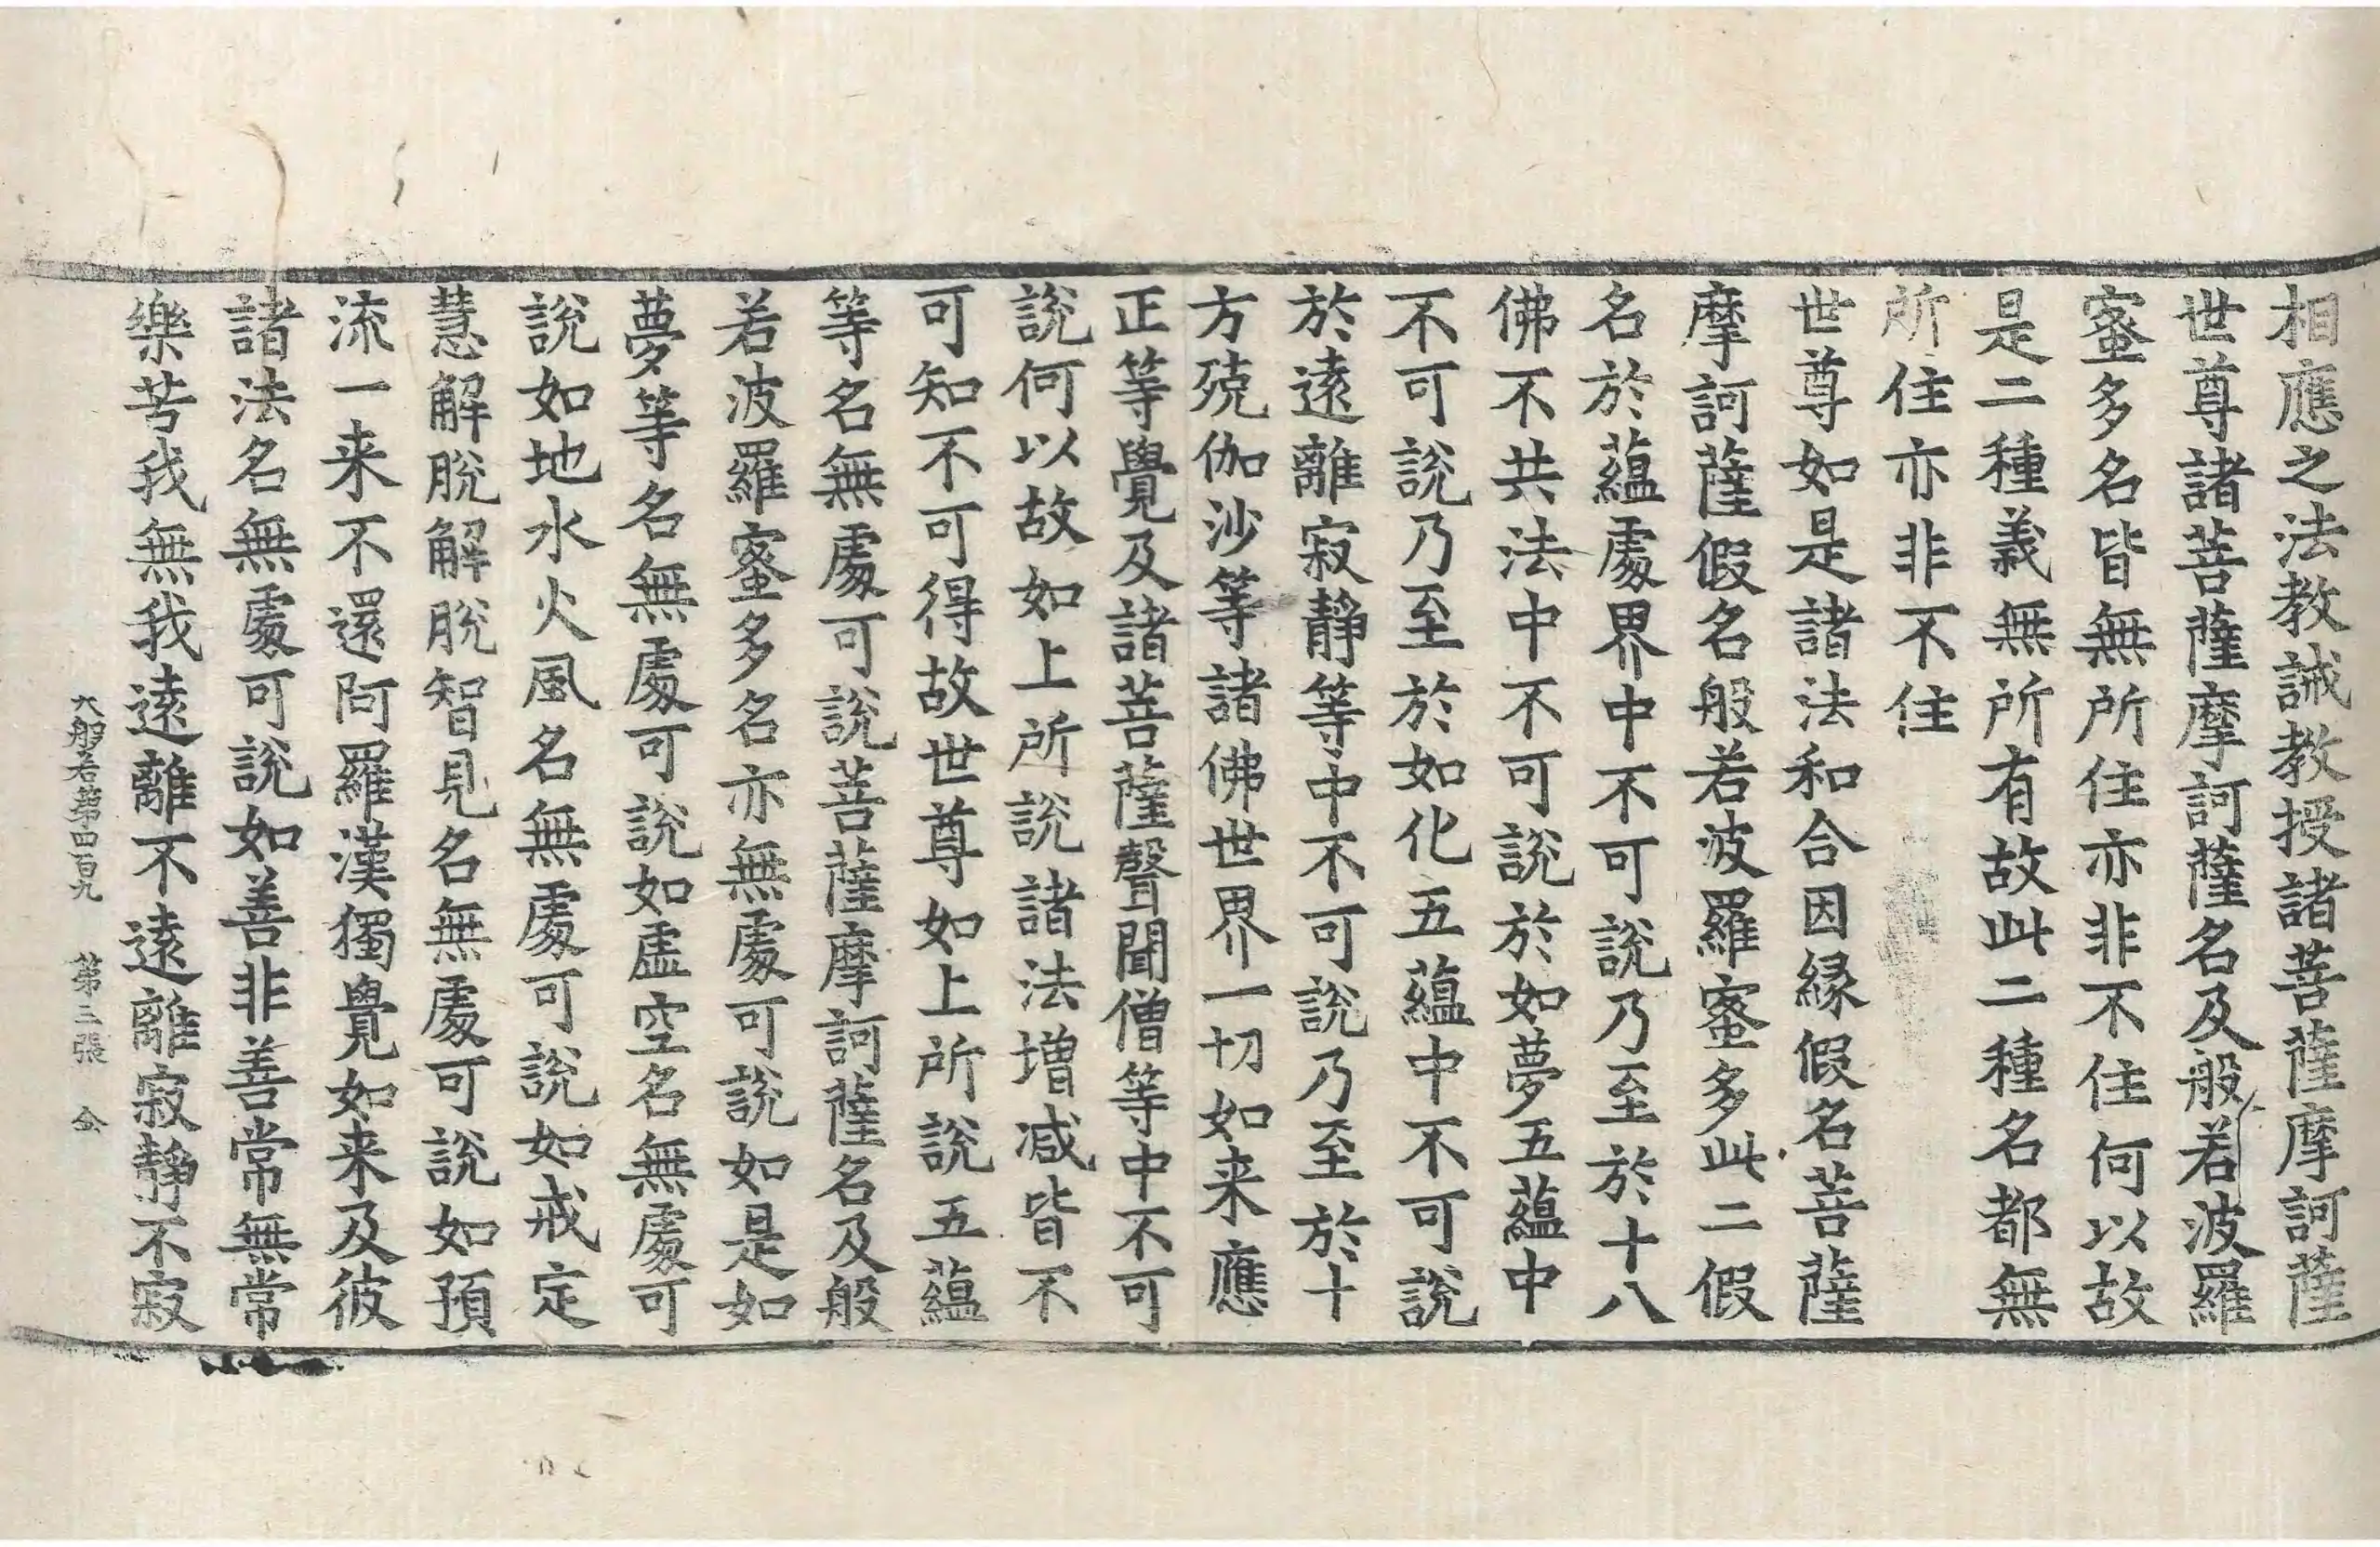 相應之法教誡教授諸菩薩摩訶薩
世尊諸菩薩摩訶薩名及般若波羅
蜜多名皆無所住亦非不住何以故
是二種義無所有故此二種名都無
所住亦非不住
世尊如是諸法和合因緣假名菩薩
摩訶薩假名般若波羅蜜多此二假
名於蘊處界中不可說乃至於十八
佛不共法中不可說於如夢五蘊中
不可說乃至於如化五蘊中不可說
於遠離寂靜等中不可說乃至於十
方殑伽沙等諸佛世界一切如来應
正等覺及諸菩薩聲聞僧等中不可
說何以故如上所說諸法增减皆不
可知不可得故世尊如上所說五蘊
等名無處可說菩薩摩訶薩名及般
若波羅蜜多名亦無處可說如是如
夢等名無處可說如虛空名無處可
說如地水火風名無處可說如戒定
慧解脫解脫智見名無處可說如預
流一来不還阿羅漢獨覺如来及彼
諸法名無處可說如善非善常無常
樂苦我無我遠離不遠離寂靜不寂
大般若第四百九 第三張 今